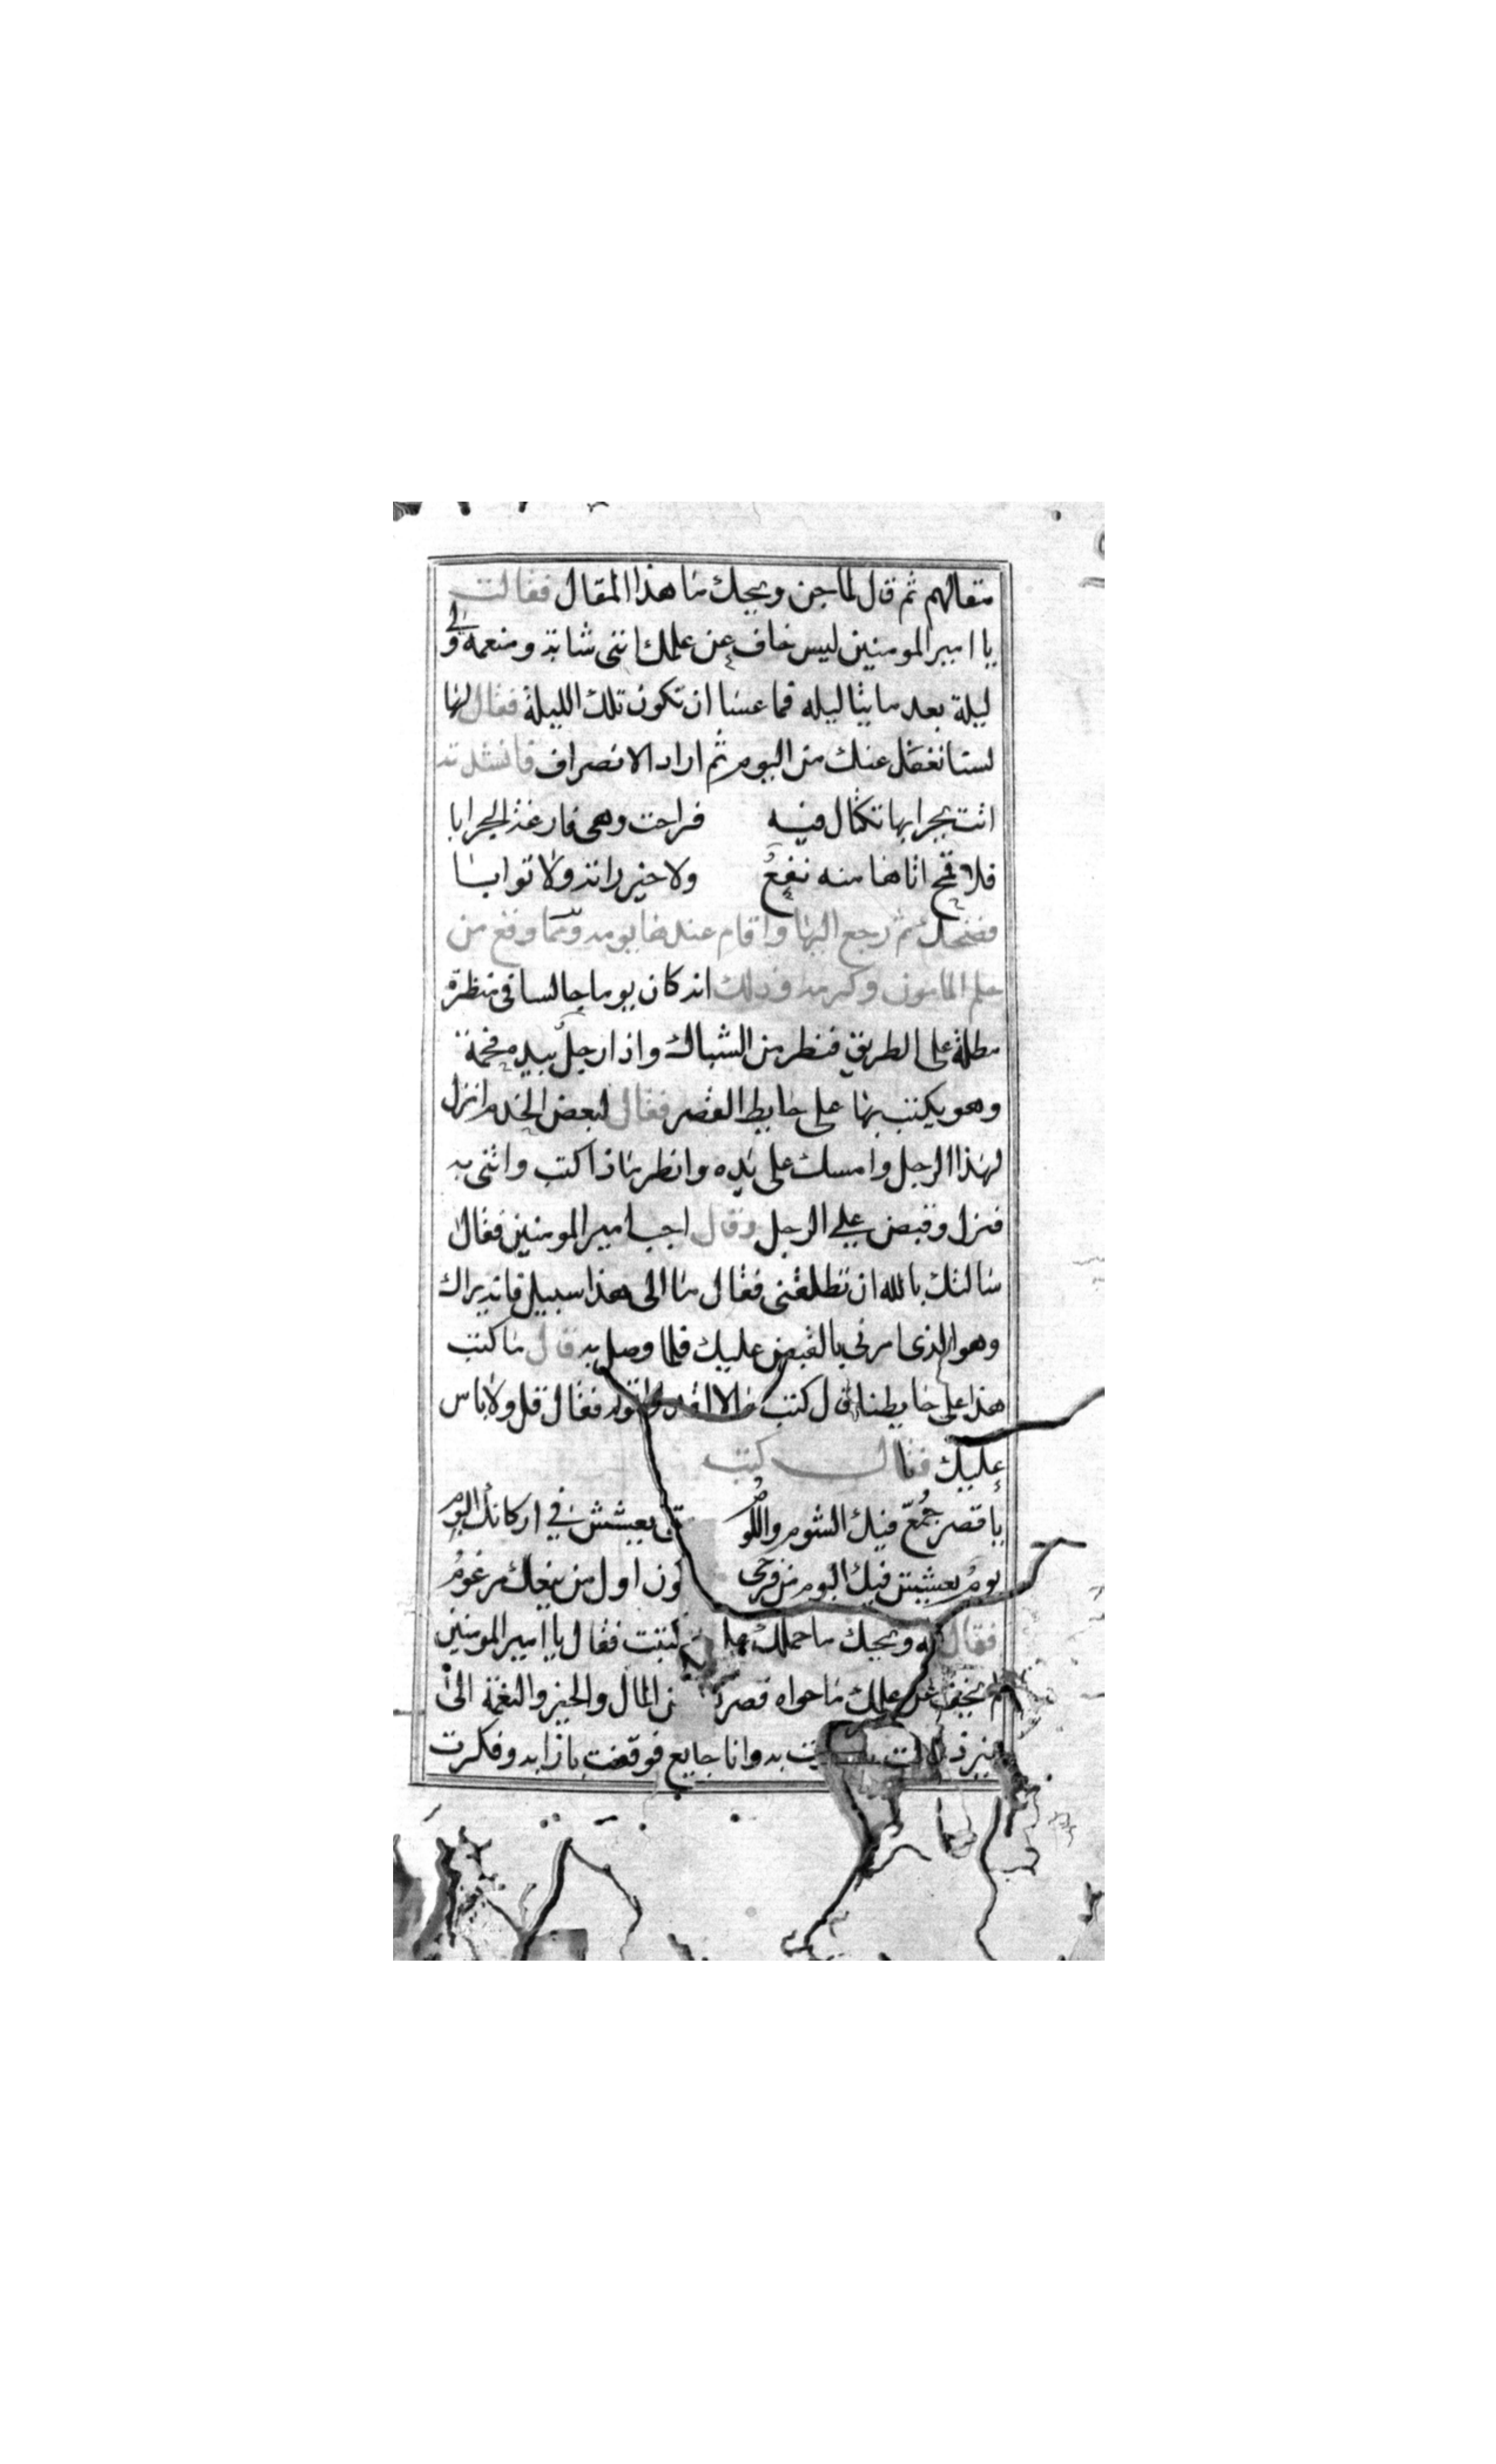 مقالهم ثم قال لماجن ويحك ما هذا المقال فقالت
يا امير المومنين ليس خاف عن علمك انني شابة ومنعمة ولي
ليلة بعد مايتا ليله فما عسا ان تكون تلك الليلة فقال لها
لست انفصل عنك من اليوم ثم اراد الانصراف فانشدته
اتت بجرابها تكتال فيه فراحت وهي فارغة الجرابا
فلا قمح اتاها منه نفع ولا خير راته ولا توابا
فضحك ثم رجع اليها واقام عندها يومه ومما وقع من
حلم المامون وكرمه وذلك انه كان يوما جالسا في منظرة
مطلة على الطريق فنظر من الشباك واذا رجل بيده فحمة
وهو يكتب بها على حايط القصر فقال لبعض الخدم انزل
لهذا الرجل وامسك على يده وانظر ماذا كتب واتنى به
فنزل وقبض علي الرجل وقال اجب امير المومنين فقال
سالتك بالله ان تطلقنى فقال ما الى هذا سبيل فانه يراك
وهو الذى امرني بالقبض عليك فلما وصل به قال ما كتبت
هذا على حايطنا قال كتبت ما لا اقدر اقوله فقال قل ولا باس
عليك فقال كتبت
يا قصر جمع فيك الشوم واللوم يعشش في اركانك البوم
يوم يعشش فيك البوم من فرحى كون اول من ينعيك مرغوم
فقال له ويحك ما حملك على كتبت فقال يا امير المومنين
لم يخف عن علمك ما حواه قصرك من المال والخير والنعمة الى
غير ذلك به وانا جايع فوقفت بازايه وفكرت